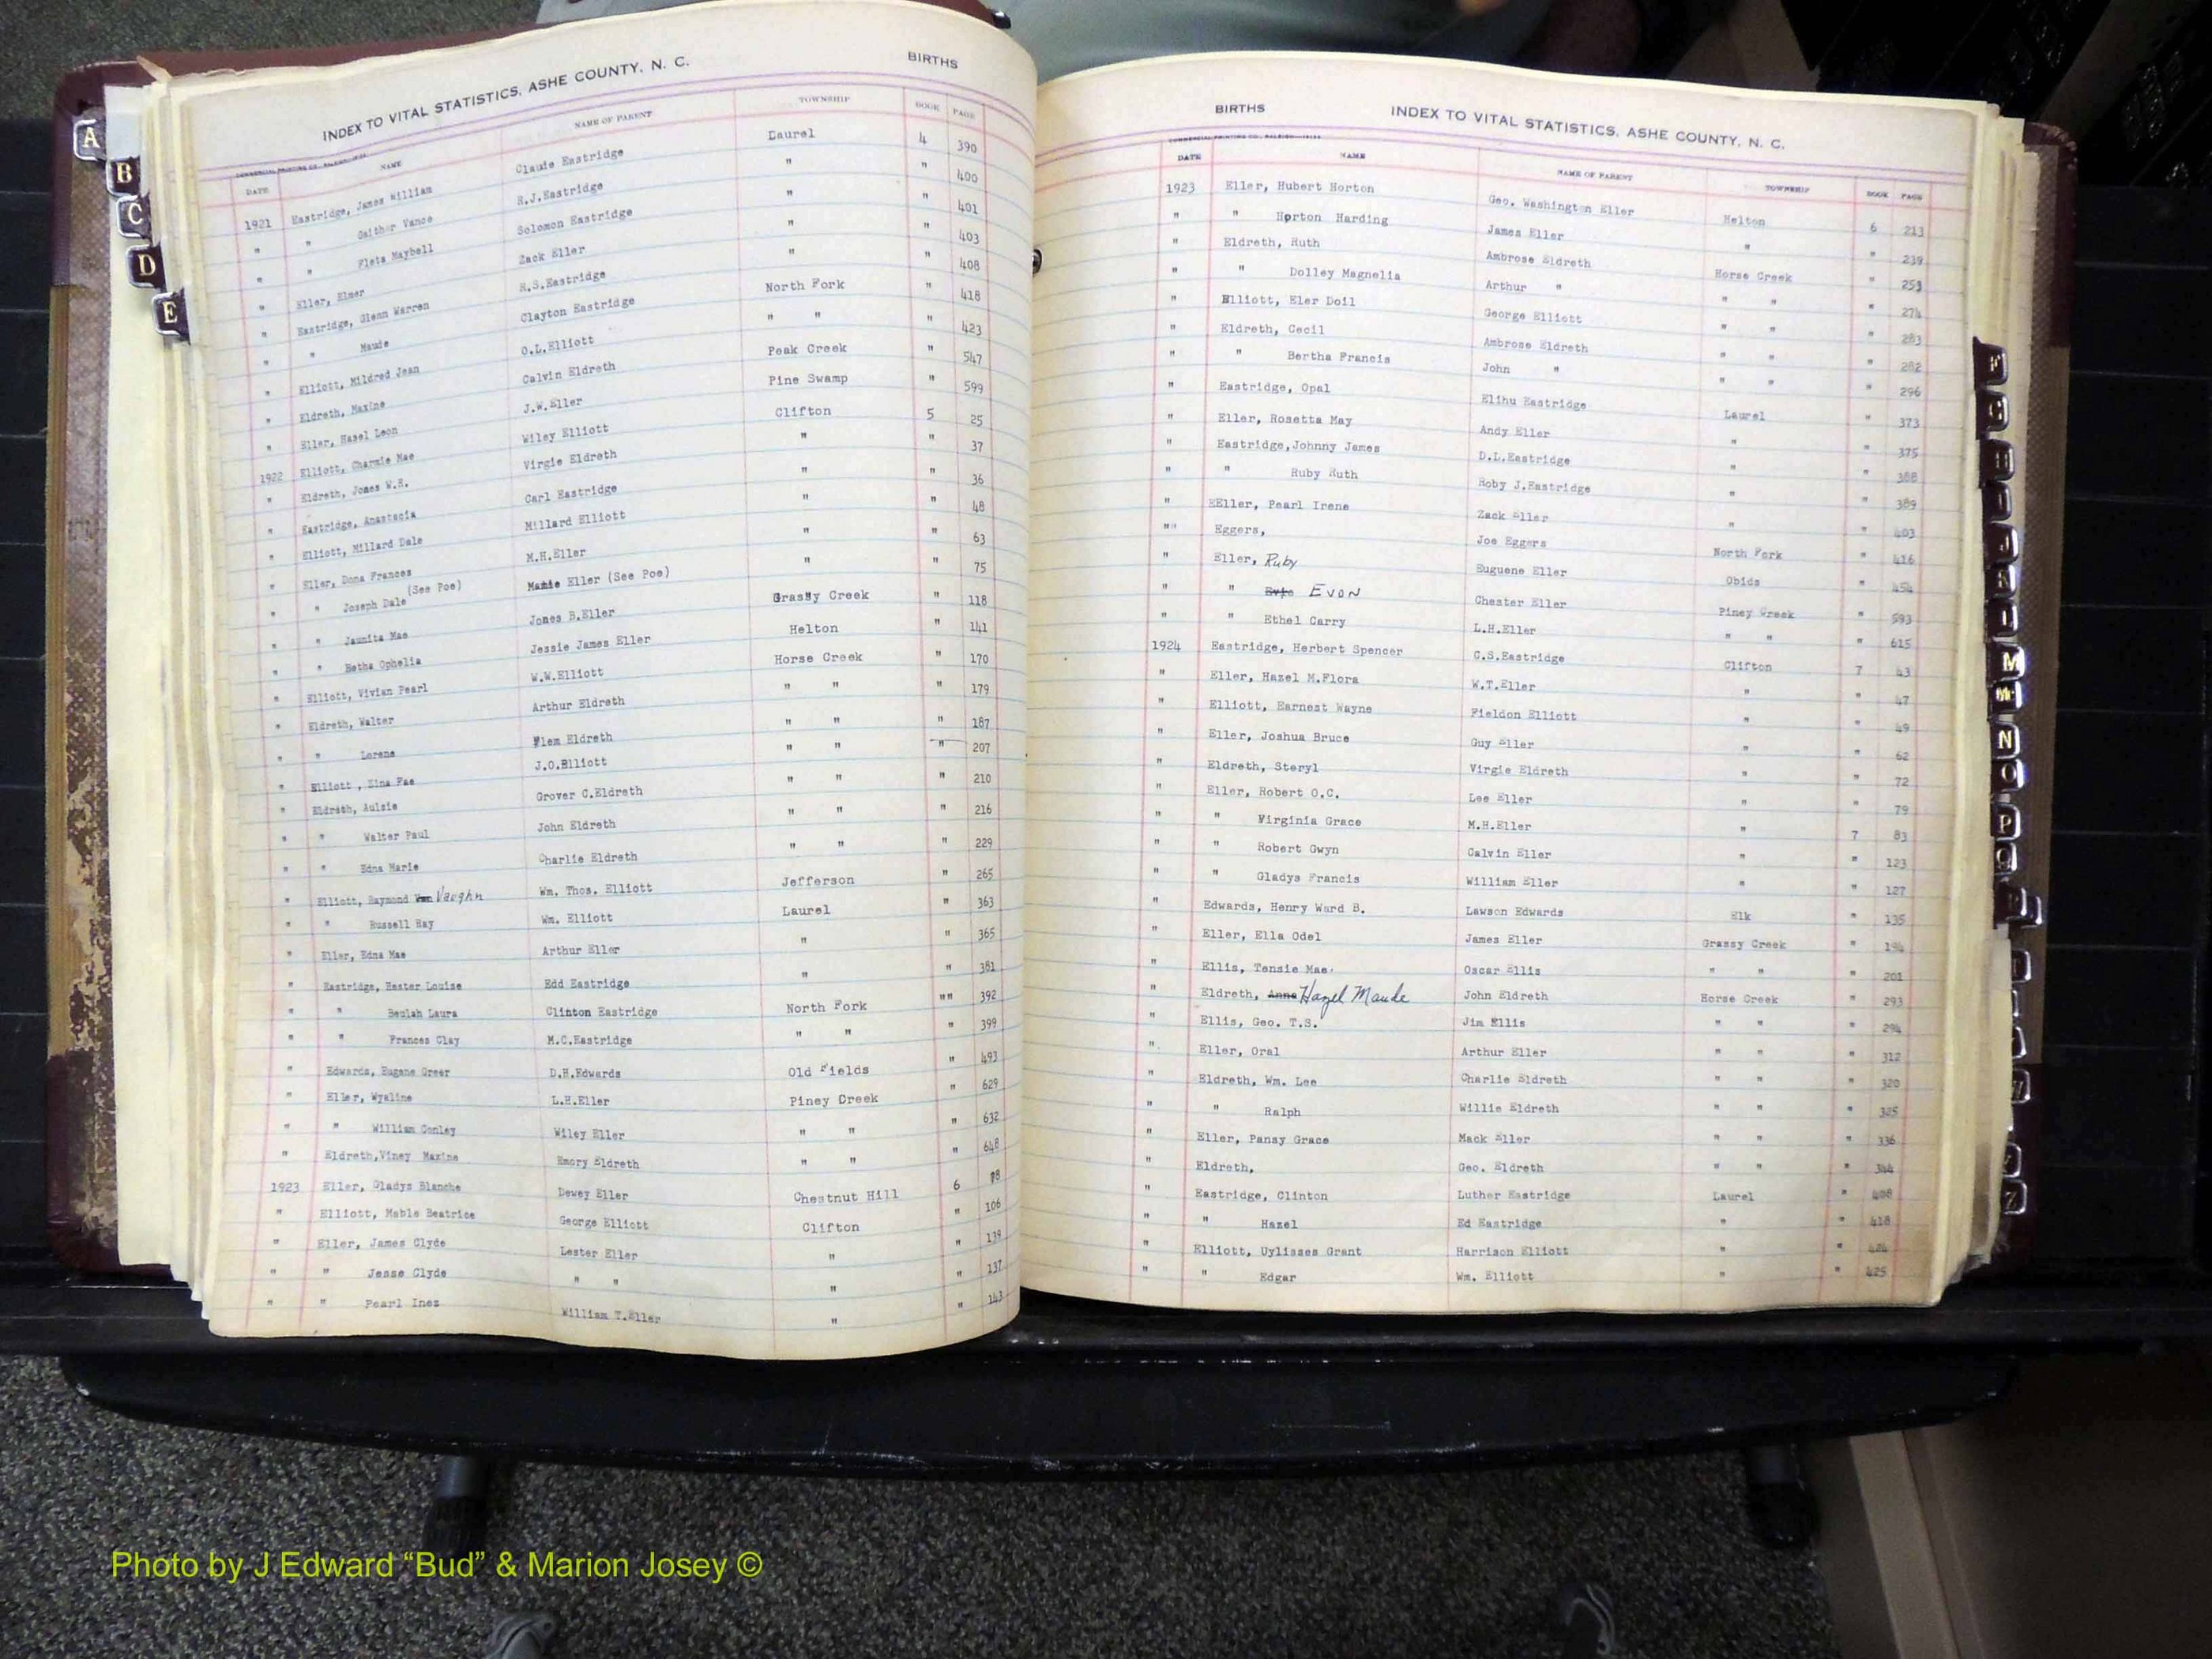 INDEX TO VITAL STATISTICS, ASHE COUNTY, N. C. BIRTHS
DATE NAME NAME OF PARENT TOWNSHIP BOOK PAGE
1921 Eastridge, James William Claude Eastridge Laurel 4 390
" " Gaither Vance R.J.Eastridge " " 400
" " Fleta Maybell Solomon Eastridge " " 401
" Eller, Elmer Zack Eller " " 403
" Eastridge, Glenn Warren R.S.Eastridge " " 408
" " Maude Clayton Eastridge North Fork " 418
" Elliott, Mildred Jean O.L.Elliott " " " 423
" Eldreth, Maxine Calvin Eldreth Peak Creek " 547
" Eller, Hazel Leon J.W.Eller Pine Swamp " 599
1922 Elliott, Charmie Mae Wiley Elliott Clifton 5 25
" Eldreth, Jones W.R. Virgie Eldreth " " 37
" Eastridge, Anastacia Carl Eastridge " " 36
" Elliott, Millard Dale Millard Elliott " " 48
" Eller, Dona Frances M.H.Eller " " 63
" " Joseph Dale (See Poe) Mamie Eller (See Poe) " " 75
" " Jaunita Mae Jones B.Eller Grassy Creek " 118
" " Retha Ophelia Jessie James Eller Helton " 141
" Elliott, Vivian Pearl W.W.Elliott Horse Creek " 170
" Eldreth, Walter Arthur Eldreth " " " 179
" " Lorene Flem Eldreth " " " 187
" Elliott , Zina Fae J.O.Elliott " " " 207
" Eldreth, Aulsie Grover C.Eldreth " " " 210
" " Walter Paul John Eldreth " " " 216
" " Edna Marie Charlie Eldreth " " " 229
" Elliott, Raymond Vaughn Wm. Thos. Elliott Jefferson " 265
" " Russell Ray Wm. Elliott Laurel " 363
" Eller, Edna Mae Arthur Eller " " 365
" Eastridge, Hester Louise Edd Eastridge " " 381
" " Beulah Laura Clinton Eastridge North Fork "" 392
" " Frances Clay M.C.Eastridge " " " 399
" Edwards, Eugene Greer D.H.Edwards Old Fields " 493
" Eller, Wyaline L.H.Eller Piney Creek " 629
" " William Conley Wiley Eller " " " 632
" Eldreth,Viney Maxine Emory Eldreth " " " 648
1923 Eller, Gladys Blanche Dewey Eller Chestnut Hill 6
" Elliott, Mable Beatrice George Elliott Clifton " 106
" Eller, James Clyde Lester Eller " " 119
" " Jesse Clyde " " " " 137
" " Pearl Inez William T.Eller " " 143
BIRTHS INDEX TO VITAL STATISTICS, ASHE COUNTY, N. C.
DATE NAME NAME OF PARENT TOWNSHIP BOOK PAGE
1923 Eller, Hubert Horton Geo. Washington Eller Helton 6 213
" " Horton Harding James Eller " " 239
" Eldreth, Ruth Ambrose Eldreth Horse Creek " 253
" " Dolley Magnelia Arthur " " " " 274
" Elliott, Eler Doil George Elliott " " " 283
" Eldreth, Cecil Ambrose Eldreth " " " 282
" " Bertha Francis John " " " " 296
" Eastridge, Opal Elihu Eastridge Laurel " 373
" Eller, Rosetta May Andy Eller " " 375
" Eastridge,Johnny James D.L.Eastridge " " 388
" " Ruby Ruth Roby J.Eastridge " " 389
" EEller, Pearl Irene Zack Eller " " 403
"" Eggers, Joe Eggers North Fork " 416
" Eller, Ruby Euguene Eller Obids " 454
" " Evon Chester Eller Piney Creek " 593
" " Ethel Carry L.H.Eller " " " 615
1924 Eastridge, Herbert Spencer C.S.Eastridge Clifton 7 43
" Eller, Hazel M.Flora W.T.Eller " " 47
" Elliott, Earnest Wayne Fieldon Elliott " " 49
" Eller, Joshua Bruce Guy Eller " " 62
" Eldreth, Steryl Virgie Eldreth " " 72
" Eller, Robert O.C. Lee Eller " " 79
" " Virginia Grace M.H.Eller " 7 83
" " Robert Gwyn Calvin Eller " " 123
" " Gladys Francis William Eller " " 127
" Edwards, Henry Ward B. Lawson Edwards Elk " 135
" Eller, Ella Odel James Eller Grassy Creek " 194
" Ellis, Tensie Mae. Oscar Ellis " " " 201
" Eldreth, Anna Hazel Maude John Eldreth Horse Creek " 293
" Ellis, Geo. T.S. Jim Ellis " " " 294
" Eller, Oral Arthur Eller " " " 312
" Eldreth, Wm. Lee Charlie Eldreth " " " 320
" " Ralph Willie Eldreth " " " 325
" Eller, Pansy Grace Mack Eller " " " 336
" Eldreth, Geo. Eldreth " " " 344
" Eastridge, Clinton Luther Eastridge Laurel " 408
" " Hazel Ed Eastridge " " 418
" Elliott, Uylisses Grant Harrison Elliott " " 424
" " Edgar Wm. Elliott " " 425
A
B
C
D
E
F
G
H
I
J
K
L
M
Mc
N
O
P
Q
R
Photo by J Edward “Bud” & Marion Josey ©